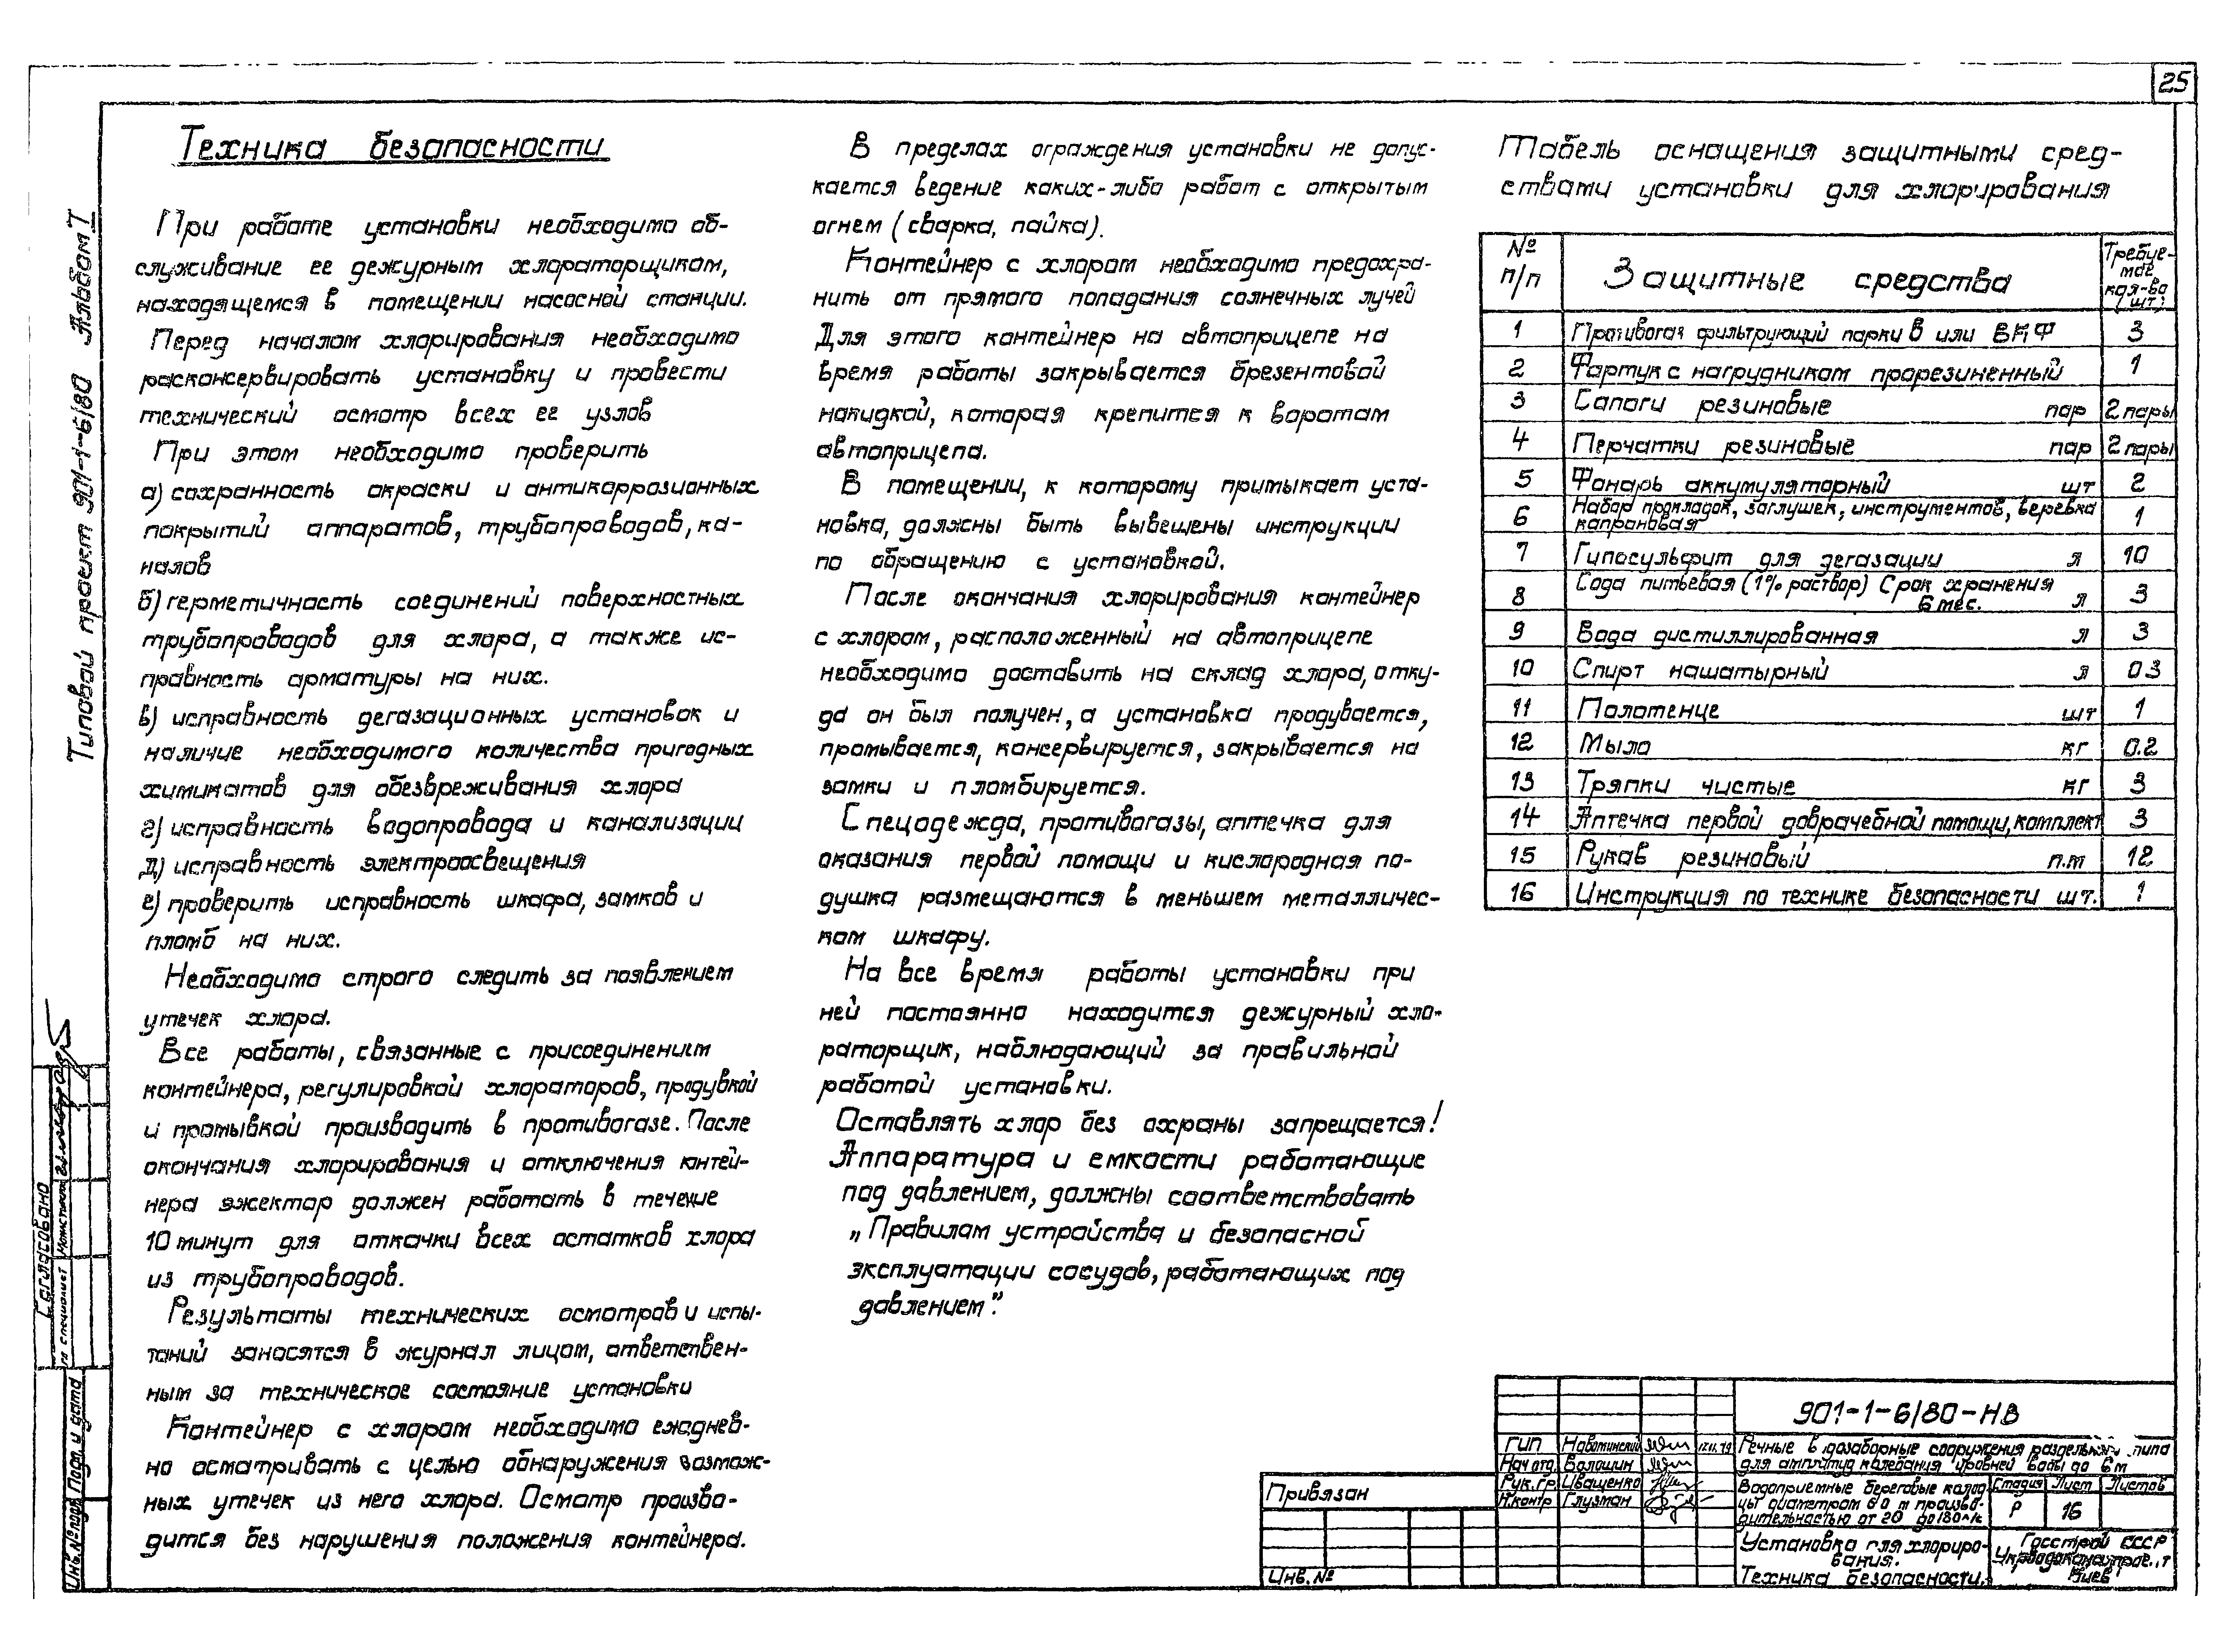 25
Типовой проект 901-1-6/80 Альбом I
Техника безопасности
При работе установки необходимо об-
служивание ее дежурным хлораторщиком,
находящемся в помещении насосной станции.
Перед началом хлорирования необходимо
расконсервировать установку и провести
технический осмотр всех ее узлов
При этом необходимо проверить
а) сохранность окраски и антикоррозионных
покрытий аппаратов, трубопроводов, ка-
налов
б) герметичность соединений поверхностных
трубопроводов для хлора, а также ис-
правность арматуры на них.
в) исправность дегазационных установок и
наличие необходимого количества пригодных
химикатов для обезвреживания хлора
г) исправность водопровода и канализации
д) исправность электроосвещения
е) проверить исправность шкафа, замков и
пломб на них.
Необходимо строго следить за появлением
утечек хлора.
Все работы, связанные с присоединением
контейнера, регулировкой хлораторов, продувкой
и промывкой производить в противогазе. После
окончания хлорирования и отключения контей-
нера эжектор должен работать в течение
10 минут для откачки всех остатков хлора
из трубопроводов.
Результаты технических осмотров и испы-
таний заносятся в журнал лицом, ответствен-
ным за техническое состояние установки
Контейнер с хлором необходимо ежеднев-
но осматривать с целью обнаружения возмож-
ных утечек из него хлора. Осмотр произво-
дится без нарушения положения контейнера.
В пределах ограждения установки не допус-
кается ведение каких-либо работ с открытым
огнем (сварка, пайка).
Контейнер с хлором необходимо предохра-
нить от прямого попадания солнечных лучей
Для этого контейнер на автоприцепе на
время работы закрывается брезентовой
накидкой, которая крепится к воротам
автоприцепа.
В помещении, к которому примыкает уста-
новка, должны быть вывешены инструкции
по обращению с установкой.
После окончания хлорирования контейнер
с хлором, расположенный на автоприцепе
необходимо доставить на склад хлора, отку-
да он был получен, а установка продувается,
промывается, консервируется, закрывается на
замки и пломбируется.
Спецодежда, противогазы, аптечка для
оказания первой помощи и кислородная по-
душка размещаются в меньшем металличес-
ком шкафу.
На все время работы установки при
ней постоянно находится дежурный хло-
раторщик, наблюдающий за правильной
работой установки.
Оставлять хлор без охраны запрещается!
Аппаратура и емкости работающие
под давлением, должны соответствовать
„Правилам устройства и безопасной
эксплуатации сосудов, работающих под
давлением".
Табель оснащения защитными сред-
ствами установки для хлорирования
№ п/п Защитные средства Требуе-мое кол-во (шт)
1 Противогаз фильтрующий марки В или ВКФ 3
2 Фартук с нагрудником прорезиненный 1
3 Сапоги резиновые пар 2 пары
4 Перчатки резиновые пар 2 пары
5 Фонарь аккумуляторный шт 2
6 Набор прокладок, заглушек, инструментов, веревка
капроновая 1
7 Гипосульфит для дегазации л 10
8 Сода питьевая (1% раствор) Срок хранения
6 мес. л 3
9 Вода дистиллированная л 3
10 Спирт нашатырный л 0 3
11 Полотенце шт 1
12 Мыло кг 0.2
13 Тряпки чистые кг 3
14 Аптечка первой доврачебной помощи, комплект 3
15 Рукав резиновый п.м 12
16 Инструкция по технике безопасности шт. 1
901-1-6/80-НВ
ГИП
Нач отд. Волошин
Рук. гр. Иващенко
Н.контр Глузман
Речные водозаборные сооружения раздельного типа
для амплитуд колебания уровней воды до 6 м
Водоприемные береговые колод-
цы диаметром 6 0 м произво-
дительностью от 20 до 180 л/с
Стадия Лист Листов
Р 16
Установка для хлориро-
вания.
Техника безопасности.
Госстрой СССР
Укрводоканалпроект
Киев
Привязан
Инв. №
Согласовано
Гл специалист
Инв.№ подл Подп. и дата